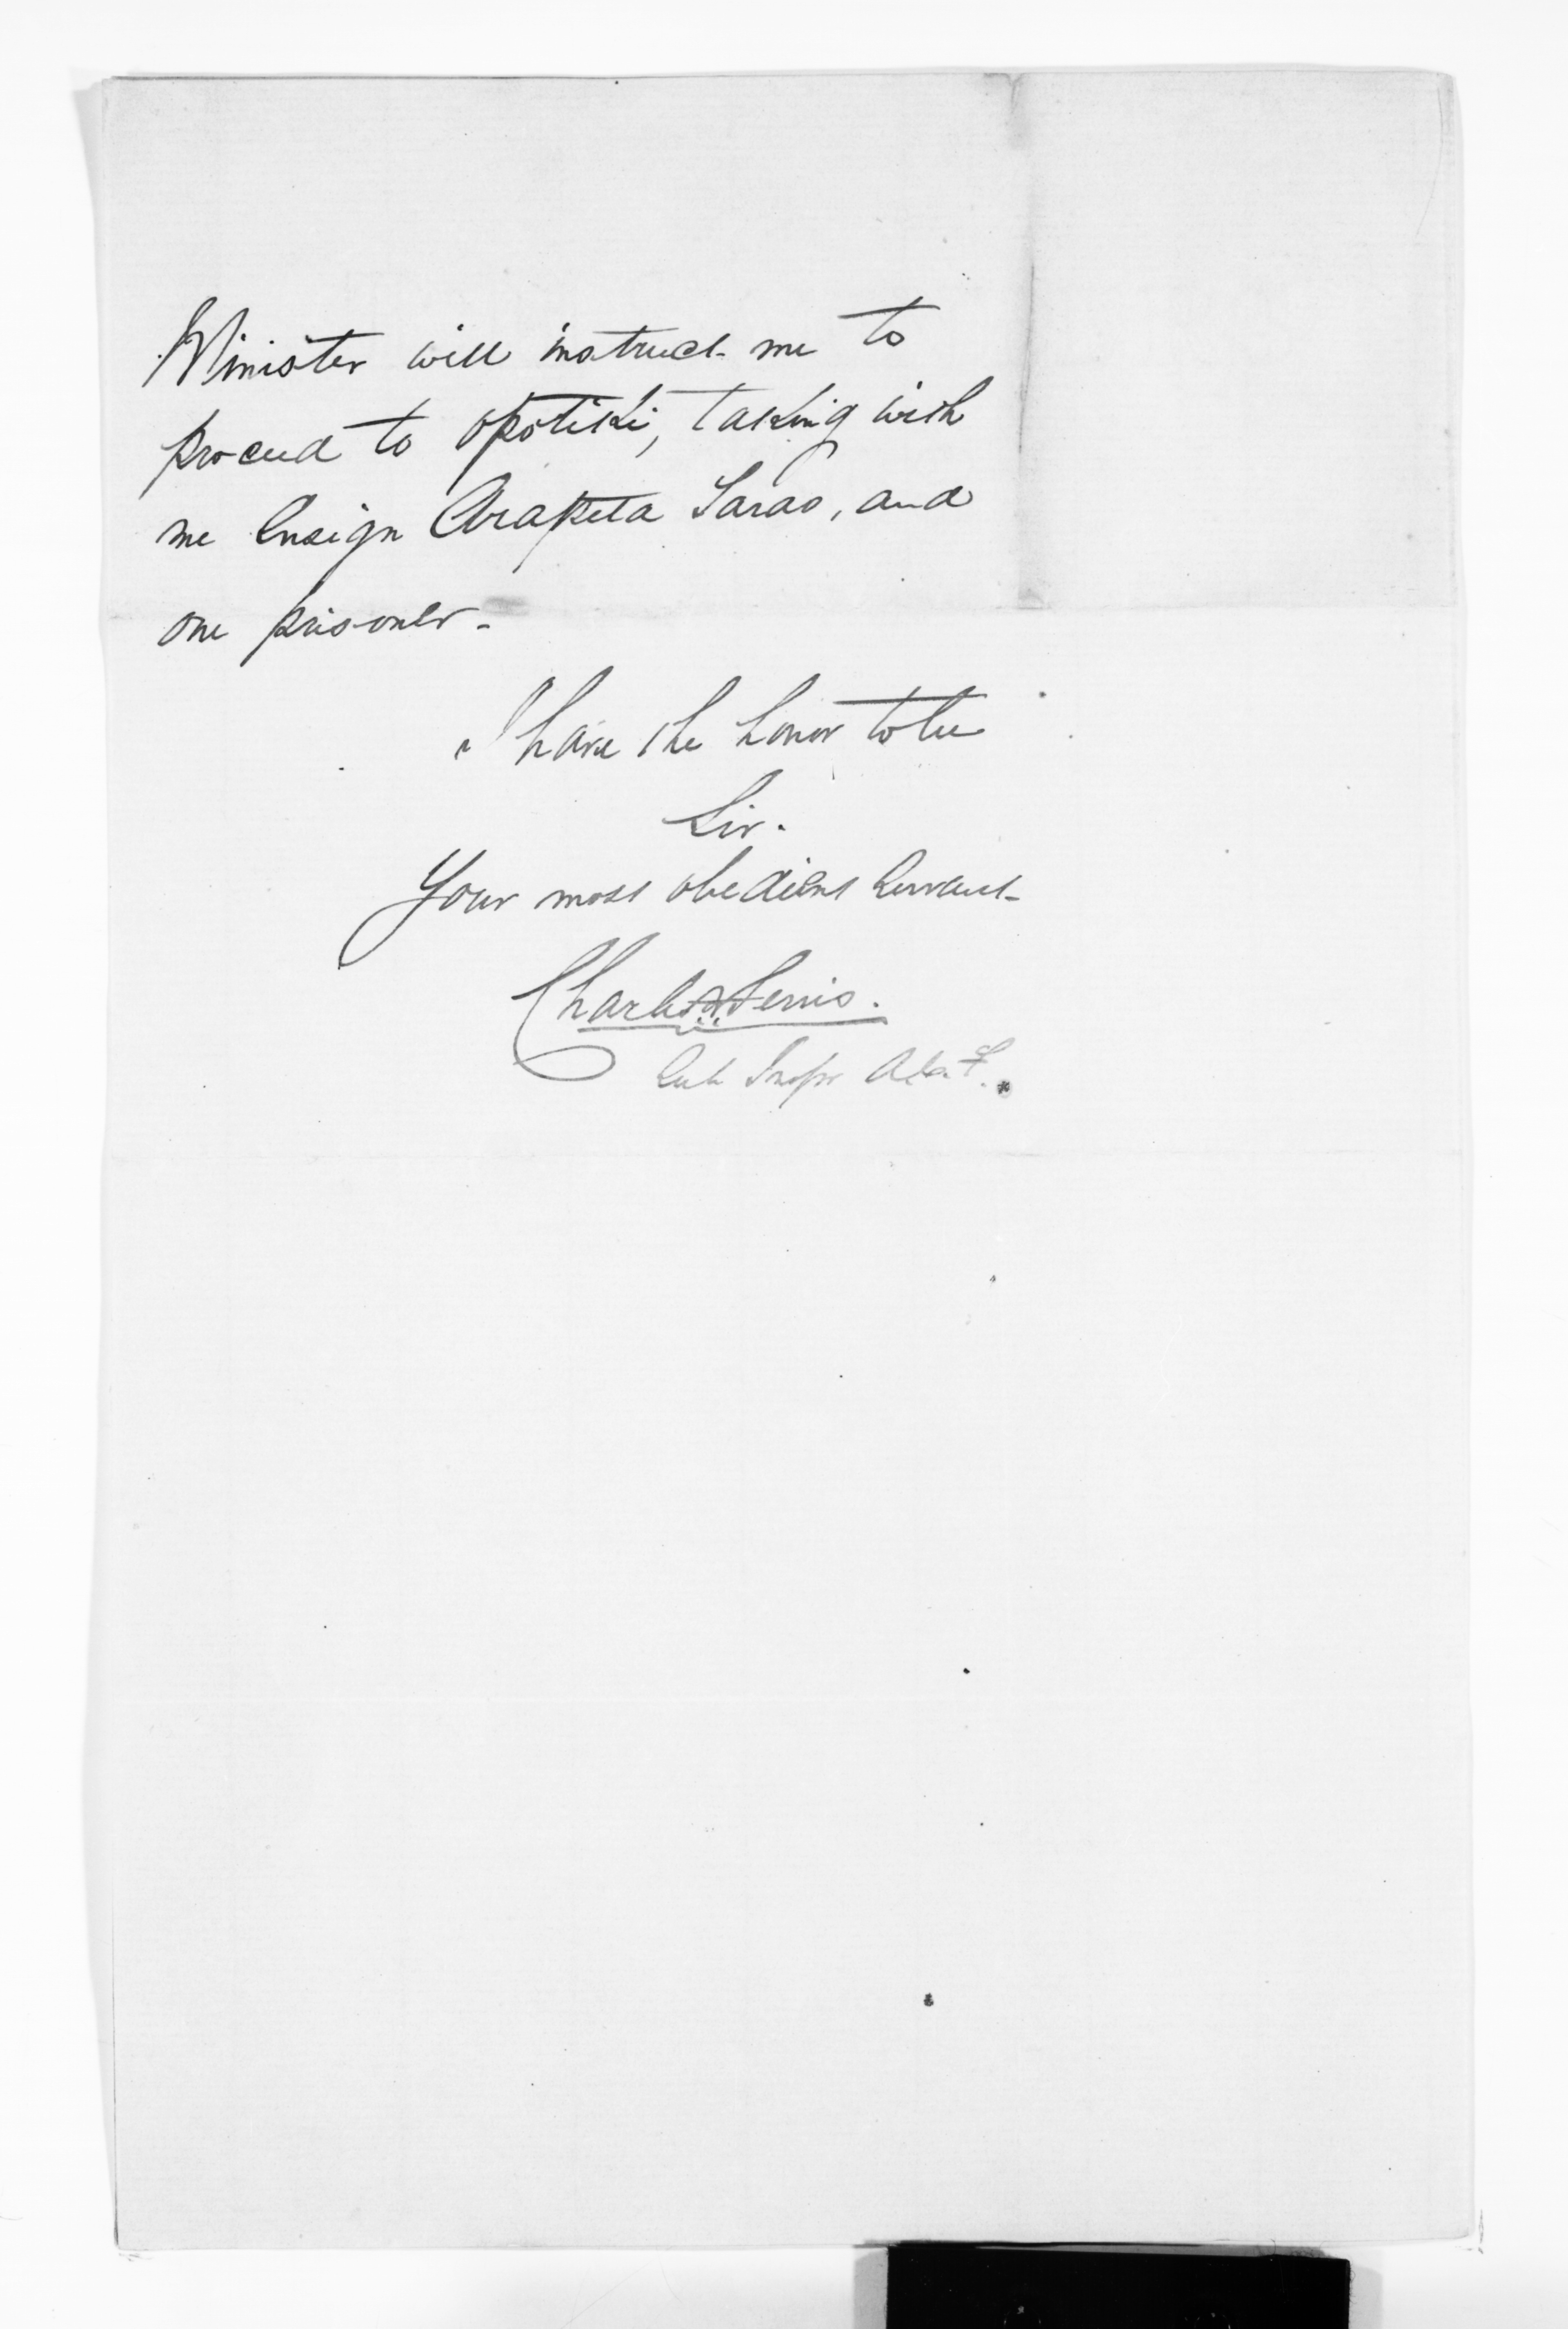 Minister will instruct me to
proceed to Opotiki, taking with
me Ensign Arapeta Tarao, and
one prisoner -
I have the honor to be
Sir.
Your most obedient Servant
Charles
Sub Inspr A.C.F.